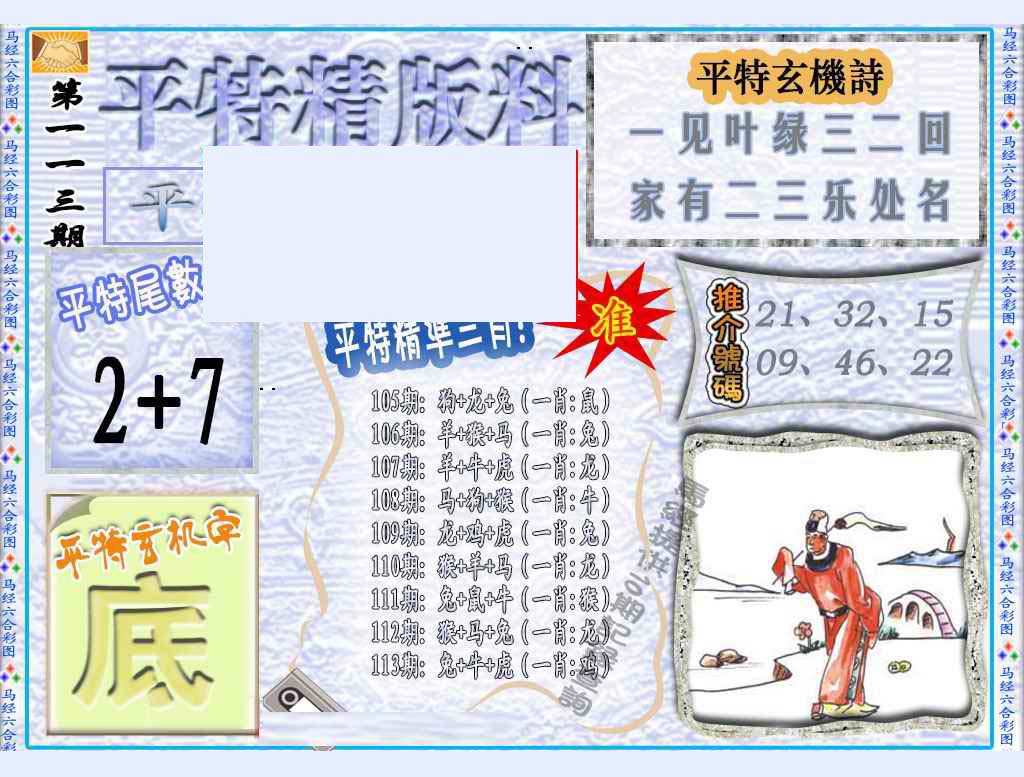 马经六合彩图
马经六合彩图
马经六合彩图
马经六合彩图
马经六合彩图
马经六合彩图
马经六合彩图
第一一三期
平特精版料
平特玄機詩
一见叶绿三二回
家有二三乐处名
平
平特尾數
2+7
平特精準三肖!
准
推介號碼
21、32、15
09、46、22
105期: 狗+龙+兔 (一肖:鼠)
106期: 羊+猴+马 (一肖:兔)
107期: 羊+牛+虎 (一肖:龙)
108期: 马+狗+猴 (一肖:牛)
109期: 龙+鸡+虎 (一肖:兔)
110期: 猴+羊+马 (一肖:龙)
111期: 兔+鼠+牛 (一肖:猴)
112期: 猴+马+兔 (一肖:龙)
113期: 兔+牛+虎 (一肖:鸡)
平特玄机字
底
马经六合彩图
马经六合彩图
马经六合彩图
马经六合彩图
马经六合彩图
马经六合彩图
马经六合彩图